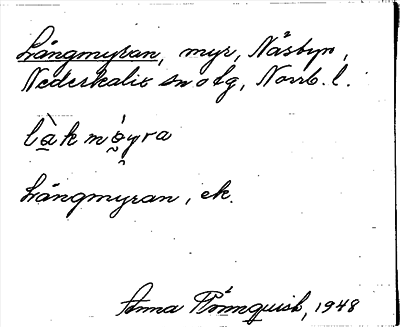 Långmyran, myr, Näsbyn,
Nederkalix sn o lg, Norrb. l.
Långmyran, ek.
Anna Rönnquist, 1948